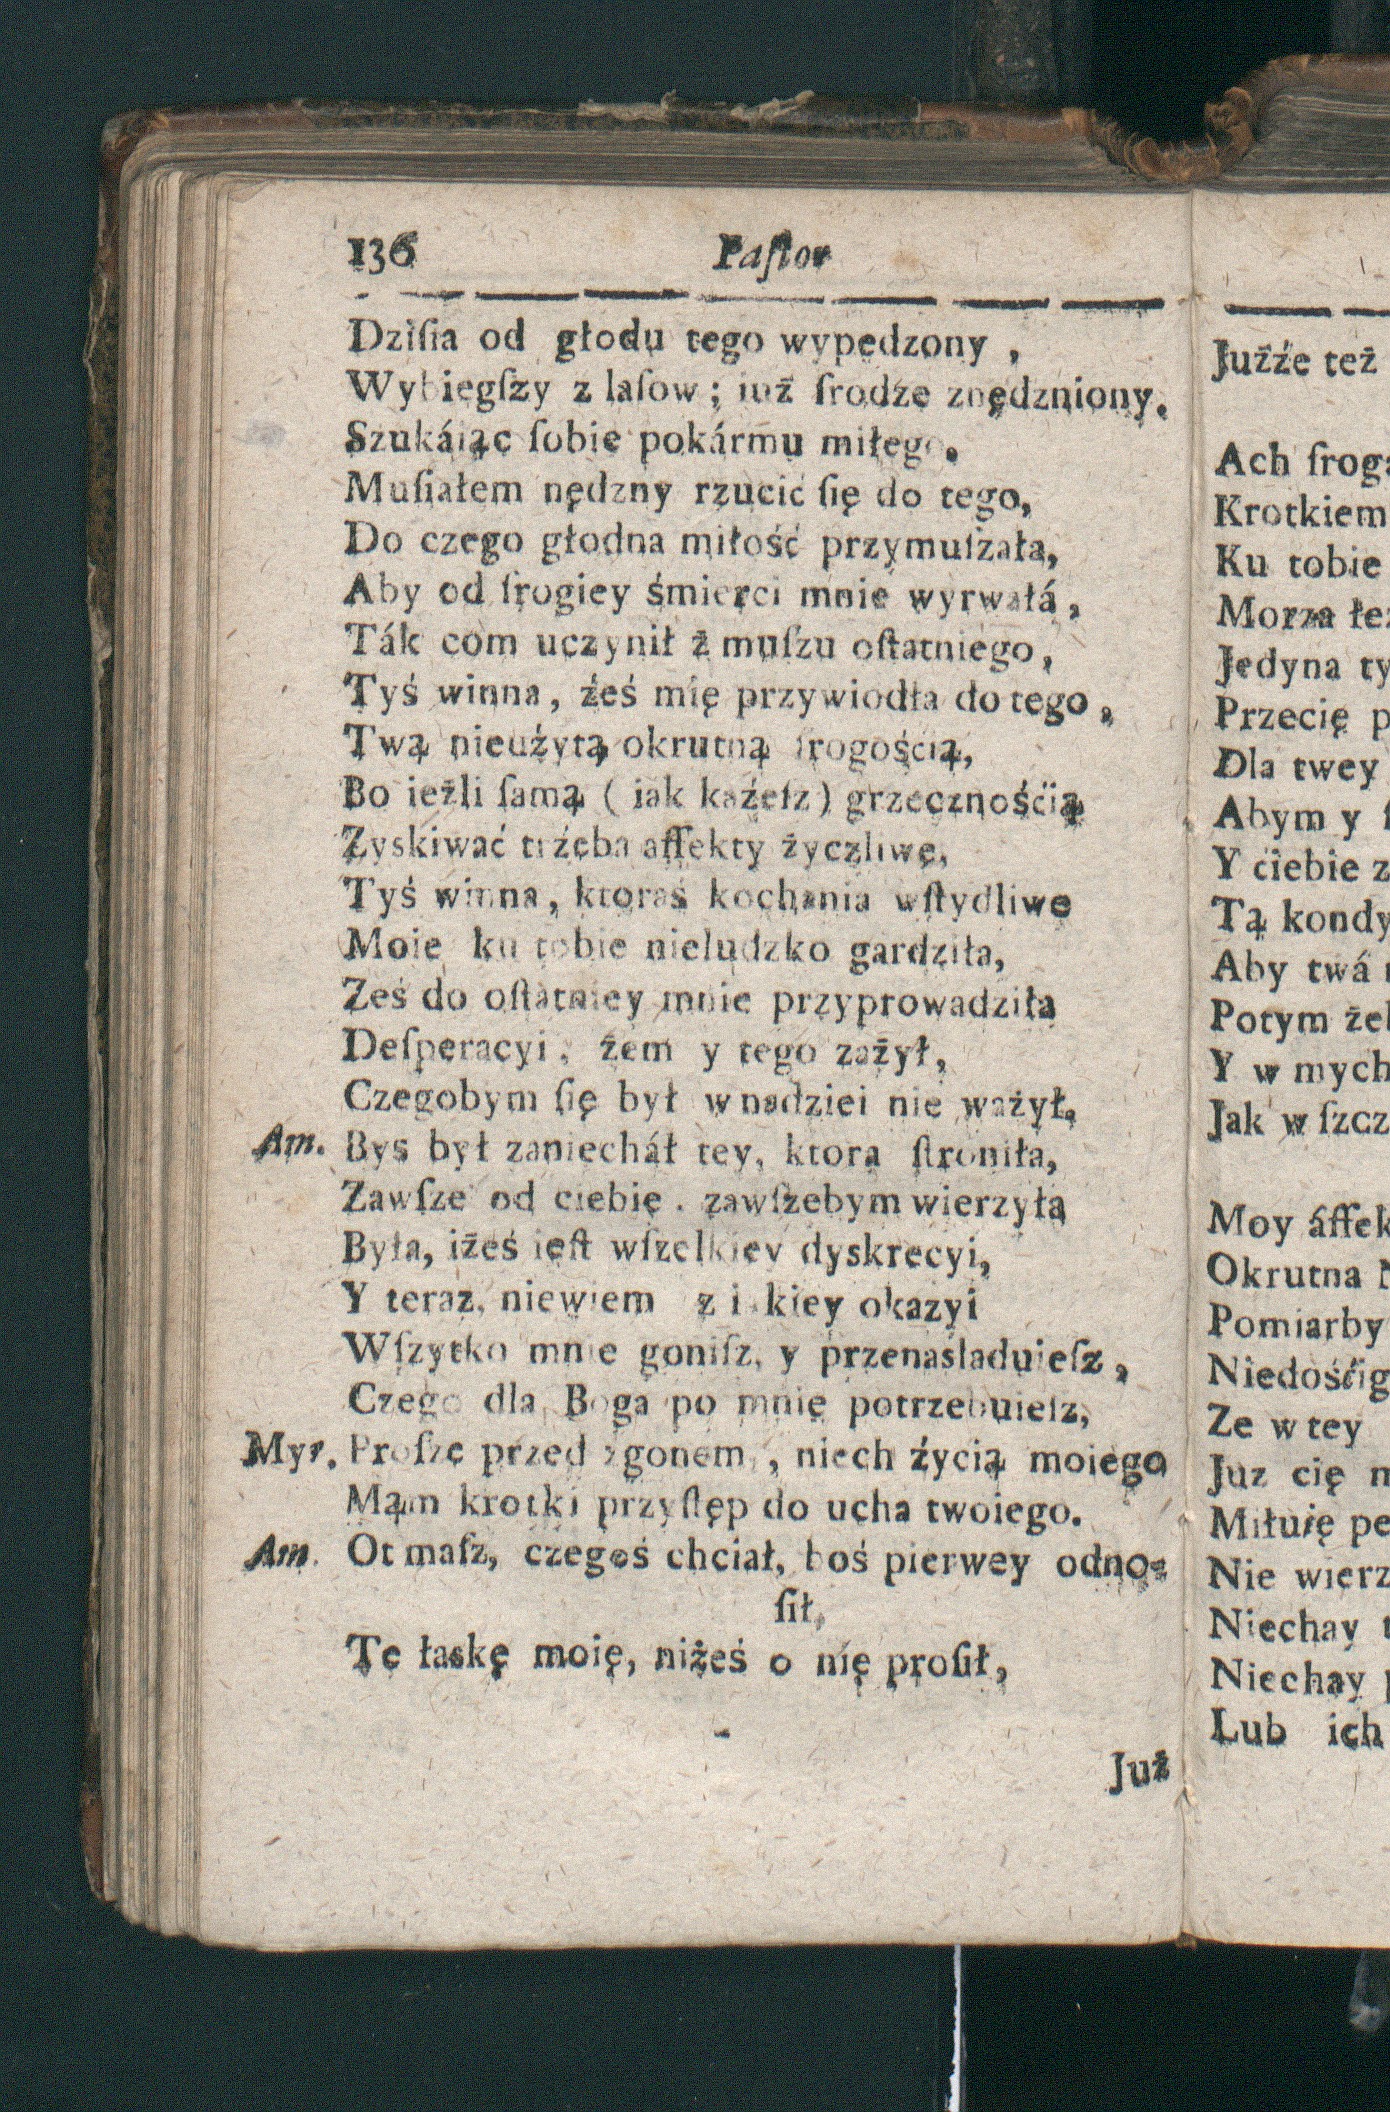 136 Paſtor
Dziſia od głodu tego wypędzony ,
Wybiegſzy z laſow ; iuż ſrodze znędzniony.
Szukáiąc ſobie pokármu miłego.
Muſiałem nędzny rzucić ſię do tego,
Do czego głodna miłość przymuſzała,
Aby od ſrogiey śmierci mnie wyrwałá ,
Ták com uczynił ż muſzu oſtatniego ,
Tyś winna , źeś mię przywiodła do tego ,
Twą nieuźytą okrutną ſrogością,
Bo ieżli ſamą ( iak kaźeſz ) grzecznośćią
Zyskiwać trźeba affekty życzliwe,
Tyś winna , ktoraś kochania wſtydliwe
Moie ku tobie nieludzko gardziła,
Ześ do oſtatniey mnie przyprowadziła
Deſperacyi , żem y tego zażył,
Czegobym ſię był w nadziei nie ważył,
Am. Bys był zaniecháł tey, ktora ſtroniła,
Zawſze od ciebię . zawſzebym wierzyła
Była, iżeś ieſt wſzelkiey dyskrecyi,
Y teraz, niewiem z iakiey okazyi
Wſzytko mnie goniſz, y przenasladuieſz ,
Czego dla Boga po mnię potrzebuieſz,
Myr. Proſzę przed zgonem , niech źycią moiego
Mąm krotki przyſtęp do ucha twoiego.
Am. Ot maſz, czegoś chciał, boś pierwey odno-
ſił,
Tę łaskę moię, niżeś o nię proſił,
Już
Jużźe też
Ach ſroga
Krotkiem
Ku tobie
Morza
Jedyna ty
Przecię
Dla twey
Abym y
Y ciebie
Tą
Aby twá
Potym
Y w mych
Jak w
Moy
Okrutna
Pomiarby
Ze w tey
Juz cię
Miłuię
Nie
Niechay
Niechay
Lub ich